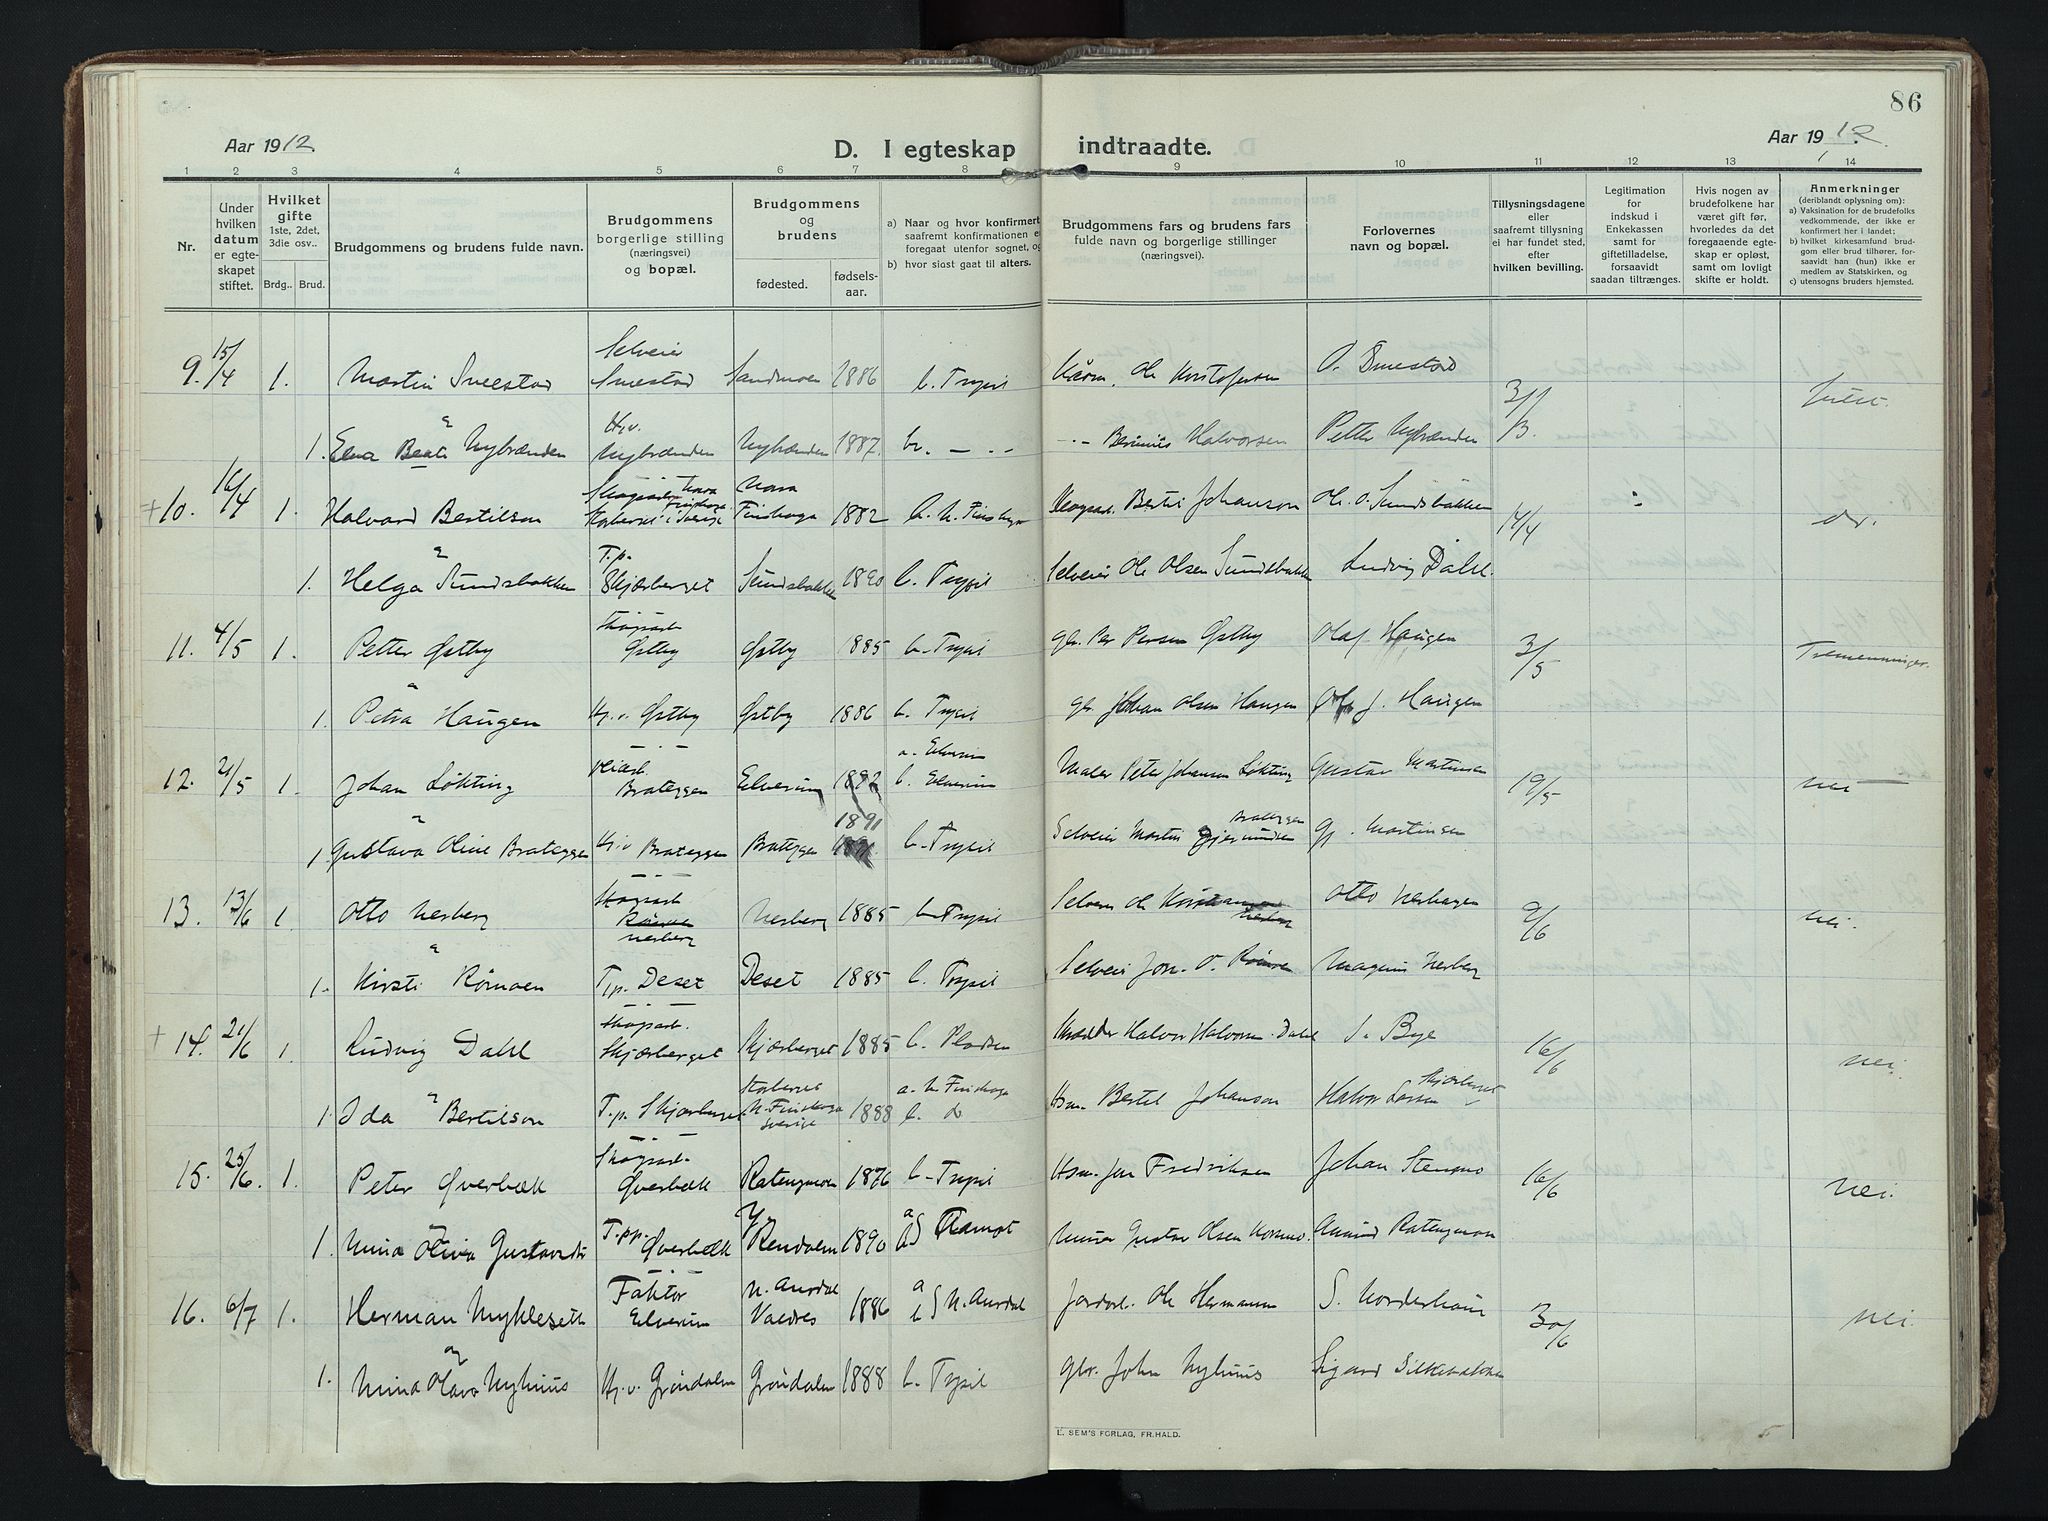 86
Aar 1912.
D. I egteskap indtraadte.
Aar 1912.
1 2 3 4 5 6 7 8 9 10 11 12 13 14
Nr.
Under hvilken datum er egteskapet stiftet.
Hvilket gifte 1ste, 2det, 3die osv..
Brdg.. Brud.
Brudgommens og brudens fulde navn.
Brudgommens borgerlige stilling (næringsvei) og bopæl.
Brudgommens og brudens
fødested.
fødselsaar.
a) Naar og hvor konfirmert, saafremt konfirmationen er foregaat utenfor sognet, og
b) hvor sidst gaat til alters.
Brudgommens fars og brudens fars fulde navn og borgerlige stillinger (næringsvei).
Forlovernes navn og bopæl.
Tillysningsdagene eller saafremt tillysning ei har fundet sted, efter hvilken bevilling.
Legitimation for indskud i Enkekassen samt for giftetilladelse, forsaavidt saadan tiltrænges.
Hvis nogen av brudefolkene har været gift før, hvorledes da det foregaaende egteskap er opløst, samt om lovligt skifte er holdt.
Anmerkninger (deriblandt oplysning om):
a) Vaksination for de brudefolks vedkommende, der ikke er konfirmert her i landet;
b) hvilket kirkesamfund brudgom eller brud tilhører, forsaavidt han (hun) ikke er medlem av Statskirken, og
c) utensogns bruders hjemsted.
9. 15/4 1. Martin Sneestad Selveier Sneestad Sandmoen 1886 b. Trysil Ole Kristofersen O. Sneestad 3/3
1. Elna Beate Nybrænden Hj.v. Nybrænden Nybrænden 1887. b. — Halvorsen Petter Nybrænden
+ 10. 16/4 1. Halvard Bertilson Skogsarb. Norra Finskoga 1882 b. N. Finskoga Skogsarb. Bertil Johanson Ole O. Sundsbakken 14/4 do.
1. Helga Sundsbakken T.p. Skjærberget Sundsbakken 1890 b. Trysil Selveier Ole Olsen Sundsbakken Ludvig Dahl.
11. 4/5 1. Petter Østby Skogsarb. Østby Østby 1885 b. Trysil gbr. Per Persen Østby Olaf Haugen 3/5 Tremenninger.
1. Petra Haugen Hj.v. Østby Østby 1886 b. Trysil gbr. Johan Olsen Haugen J. Haugen
12. 21/5 1. Johan Løkting Brateggen Elverum a. Elverum b. Elverum Maler Peter Johansen Løkting Gustav Martinsen 19/5 nei
1 Gustava Oline Brateggen Hj.v Brateggen Brateggen 1891 b. Trysil Selveier Martin Gjermundsen Brateggen G. Martinsen
13. 13/6 1. Otto Nerberg Skogsarb. Nerberg Nerberg 1885 b. Trysil Selveier Ole Nerberg Otto Nerhagen 9/6 nei.
1. Kirsti Römoen T.p. Deset Deset 1885 b. Trysil Selveier Jon O. Magnus Nerberg
+ 14. 21/6 1. Ludvig Dahl Skogsarb. Skjærberget Skjærberget 1885 b. Pladsen Halvor Halvorsen Dahl S. Bye 16/6 nei
1 Ida Bertilson T.p. Skjærberget N. Finskoga Sverige 1888 a. N. Finskoga b. do Hsm. Bertil Johanson Halvor Larsen Skjærberget
15. 25/6. 1. Peter Øverbæk Skogsarb. Øverbæk Ratengmoen 1876 b. Trysil Hsm. Jon Fredriksen Johan Stenmo 16/6 nei.
1. Mina Oliva Gustavsdtr T.p. Øverbæk Y. Rendalen 1890 a b Aamot Gustav Olsen Kornmo. Amund Ratengmoen
16. 6/7 1. Herman Nykleseth Faktor Elverum N. Aurdal Valdres 1886 a b N. Aurdal Jordarb. Ole Hermansen S. Norderhaug 30/6 nei.
1. og Mina Olava Nyhuus Hj.v. Gröndalen Gröndalen 1888 b. Trysil gbr. John Nyhuus Sigurd Silkebakken
L. SEM'S FORLAG, FR.HALD.